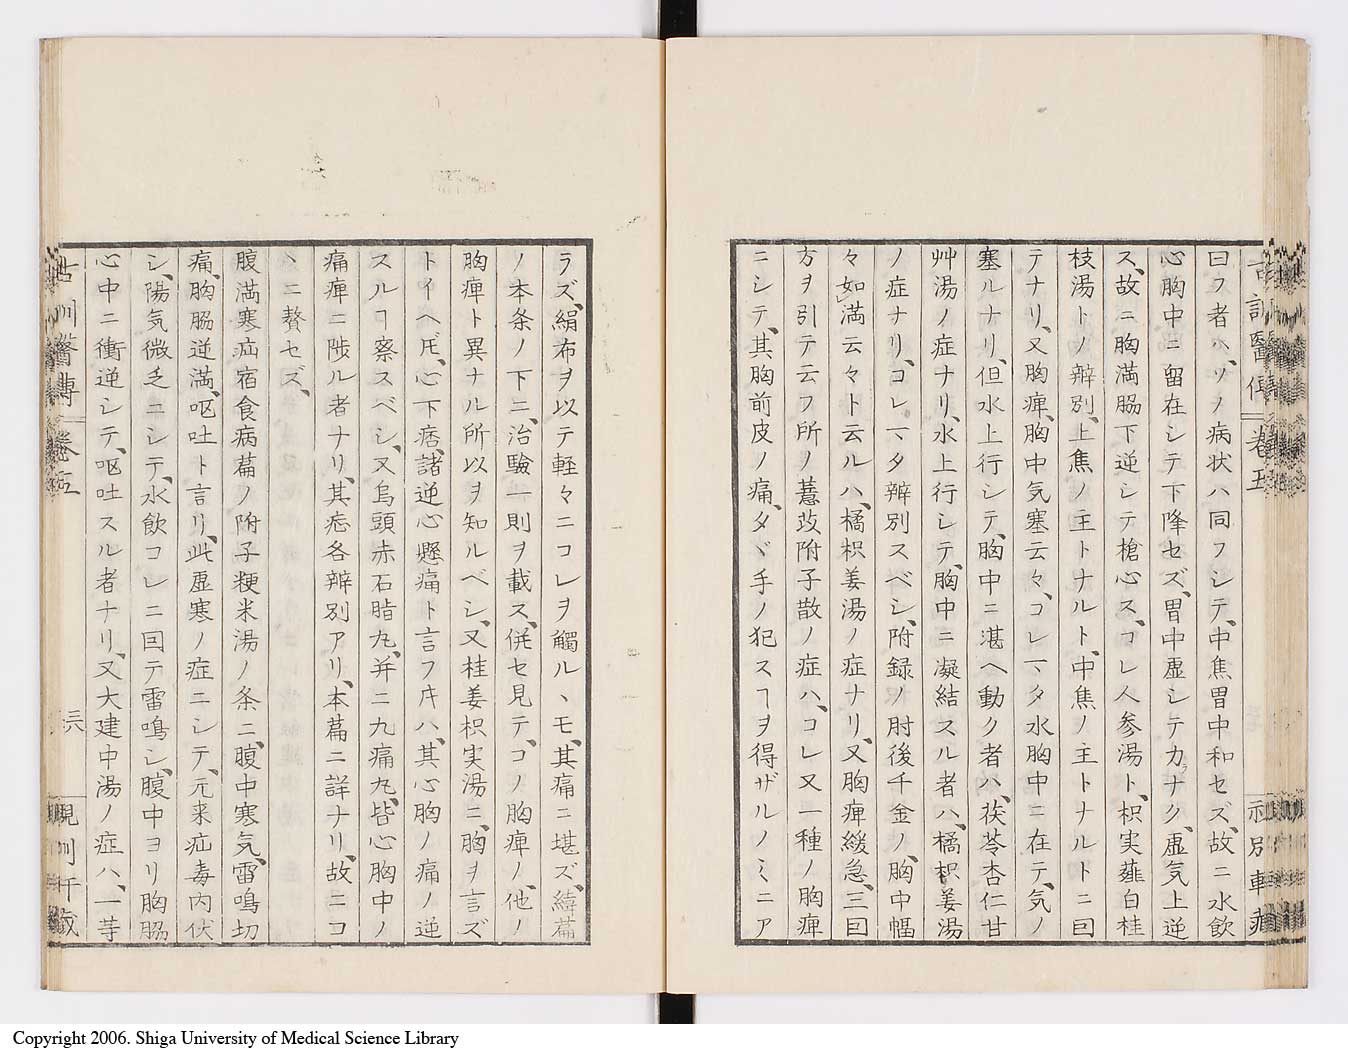 曰フ者ハ、ソノ病状ハ同フシテ、中焦胃中和セズ、故ニ水飲
心胸中ニ留在シテ下降セズ、胃中虚シテカナク、虚気上逆
ス、故ニ胸満脇下逆シテ槍心ス、コレ人参湯ト、枳実薤白桂
枝湯トノ辨別、上焦ノ主トナルト、中焦ノ主トナルトニ曰
テナリ、又胸痺、胸中気塞云々、コレマタ水胸中ニ在テ、気ノ
塞ルナリ、但水上行シテ、胸中ニ湛ヘ動ク者ハ、茯苓杏仁甘
艸湯ノ症ナリ、水上行シテ、胸中ニ凝結スル者ハ、橘枳姜湯
ノ症ナリ、コレマタ辨別スベシ、附録ノ肘後千金ノ、胸中愊
々如満云々ト云ルハ、橘枳姜湯ノ症ナリ、又胸痺緩急、三曰
方ヲ引テ云フ所ノ薏苡附子散ノ症ハ、コレ又一種ノ胸痺
ニシテ、其胸前皮ノ痛、タヾ手ノ犯スヿヲ得ザルノミニア
ラズ、絹布ヲ以テ軽々ニコレヲ觸ルヽモ、其痛ニ堪ズ、續篇
ノ本条ノ下ニ、治驗一則ヲ載ス、併セ見テ、コノ胸痺ノ、他ノ
胸痺ト異ナル所以ヲ知ルベシ、又桂姜枳実湯ニ、胸ヲ言ズ
トイヘ𪜈、心下痞、諸逆心懸痛ト言フ片ハ、其心胸ノ痛ノ逆
スルヿ察スベシ、又烏頭赤石脂丸、并ニ九痛丸、皆心胸中ノ
痛痺ニ陟ル者ナリ、其㤙各辨別アリ、本篇ニ詳ナリ、故ニコ
ヽニ贅セズ、
腹満寒疝宿食病篇ノ附子粳米湯ノ条ニ、腹中寒気、雷鳴切
痛、胸脇逆満、呕吐ト言リ、此虚寒ノ症ニシテ、元来疝毒内伏
シ、陽気微乏ニシテ、水飲コレニ回テ雷鳴シ、腹中ヨリ胸脇
心中ニ衝逆シテ、呕吐スル者ナリ、又大建中湯ノ症ハ、一等
古訓醫傳 巻五
三八